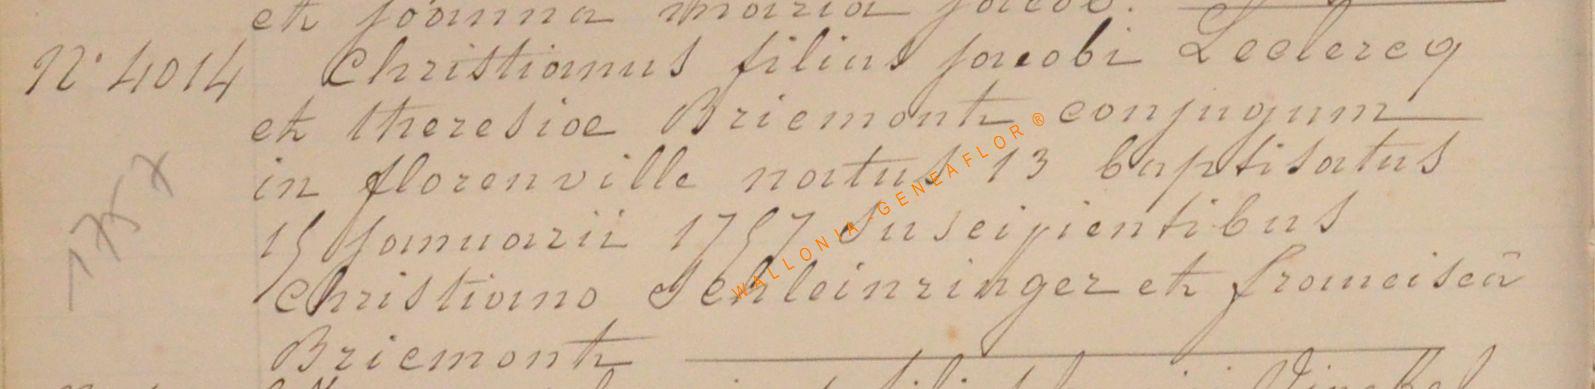 et joanna maria jacob.
N° 4014 Christianus filius jacobi Leclercq
et theresiae Briemont conjugum
in florenville natus 13 baptisatus
15 januarii 1757 Suscipientibus
1757
Christiano Schleinringer et franciscâ
Briemont
WALLONIA-GENEAFLOR ®